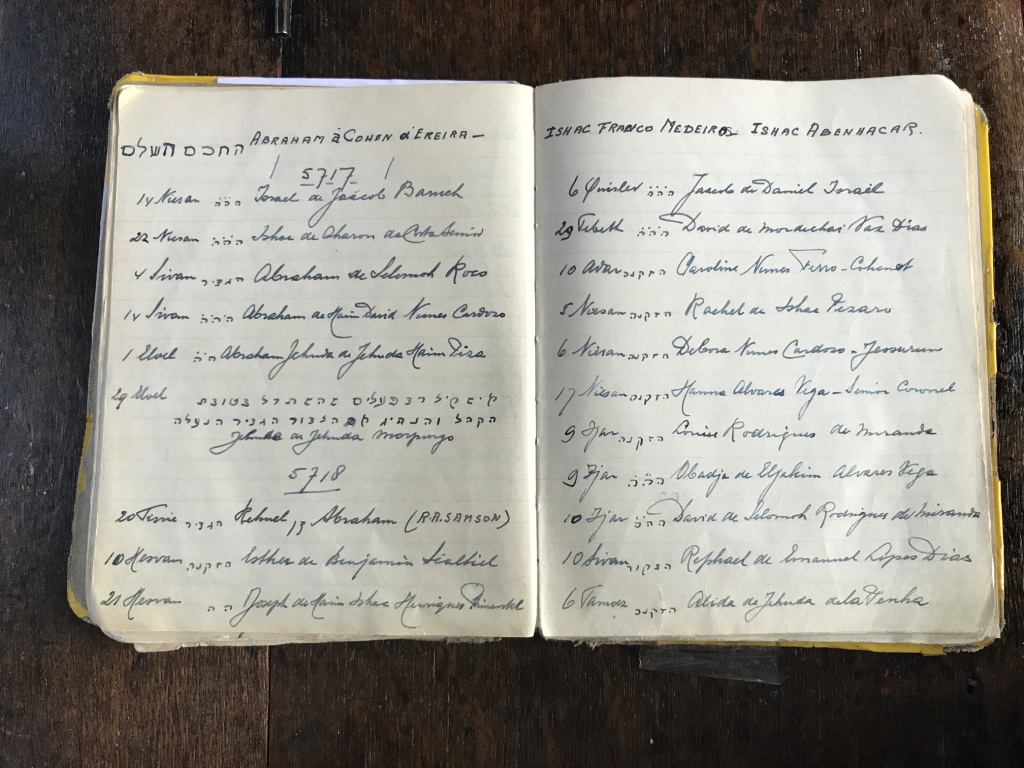 החכם השלם ABRAHAM à COHEN d'EREIRA -
5717
14 Nissan ה״ה״ה Israel de Jaäcob Baruch
22 Nissan ה״ה״ה Ishac de Aharon da Costa Senior
4 Sivan הגביר Abraham de Selomoh Roco
14 Sivan ה״ה״ה Abraham de Haim David Nunes Cardozo
1 Eloel ה״ה Abraham Jehuda de Jehuda Haim Piza
29 Eloel איש רב פעלים שהשתדל בטובת
הקהל והנהיג את הצבור הגביר הנעלה
Jehuda de Jehuda Morpurgo
5718
20 Tisrie הגביר Rehuel בן Abraham (R.A. SAMSON)
10 Hesvan הזקנה Esther de Benjamin Sealtiel
21 Hesvan ה״ה Joseph de Haim Ishac Henriques Pimentel
ISHAC FRANCO MEDEIROS ISHAC ABENHACAR.
6 Quislev ה״ה״ה Jaacob de Daniel Israël
29 Tebeth ה״ה״ה David de Mordechai Vaz Dias
10 Adar הזקנה Caroline Nunes Ferro-Cohenot
5 Nissan הזקנה Rachel de Ishac Pezaro
6 Nissan הזקנה Debora Nunes Cardozo - Jessurun
17 Nissan הזקנה Hanna Alvares Vega - Senior Coronel
9 Ijar הזקנה Louise Rodrigues de Miranda
9 Ijar ה״ה״ה Obadja de Eljakim Alvares Vega
10 Ijar ה״ה״ה David de Selomoh Rodrigues de Miranda
10 Sivan Rephael de Emanuel Lopes Dias
6 Tamoz הזקנה Alida de Jehuda dela Penha